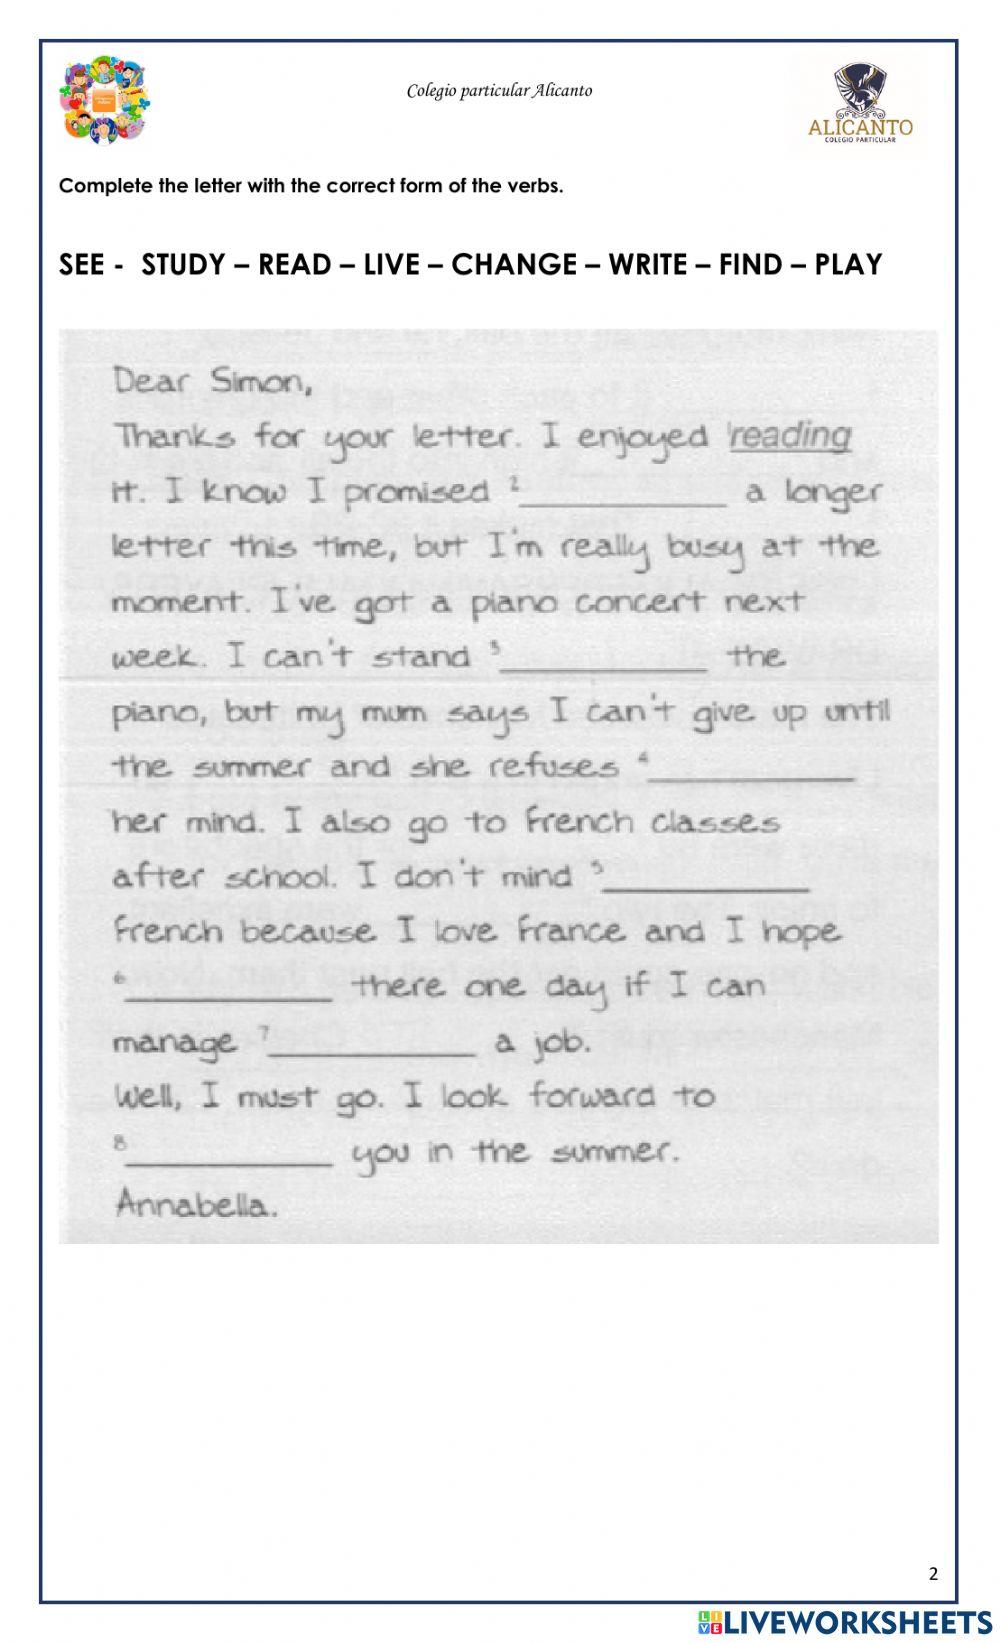 Colegio particular Alicanto
ALICANTO
COLEGIO PARTICULAR
Complete the letter with the correct form of the verbs.
SEE - STUDY – READ – LIVE – CHANGE – WRITE – FIND – PLAY
Dear Simon,
Thanks for your letter. I enjoyed ¹reading
it. I know I promised ²__________ a longer
letter this time, but I'm really busy at the
moment. I've got a piano concert next
week. I can't stand ³__________ the
piano, but my mum says I can't give up until
the summer and she refuses ⁴__________
her mind. I also go to French classes
after school. I don't mind ⁵__________
French because I love France and I hope
⁶__________ there one day if I can
manage ⁷__________ a job.
Well, I must go. I look forward to
⁸__________ you in the summer.
Annabella.
2
LIVEWORKSHEETS